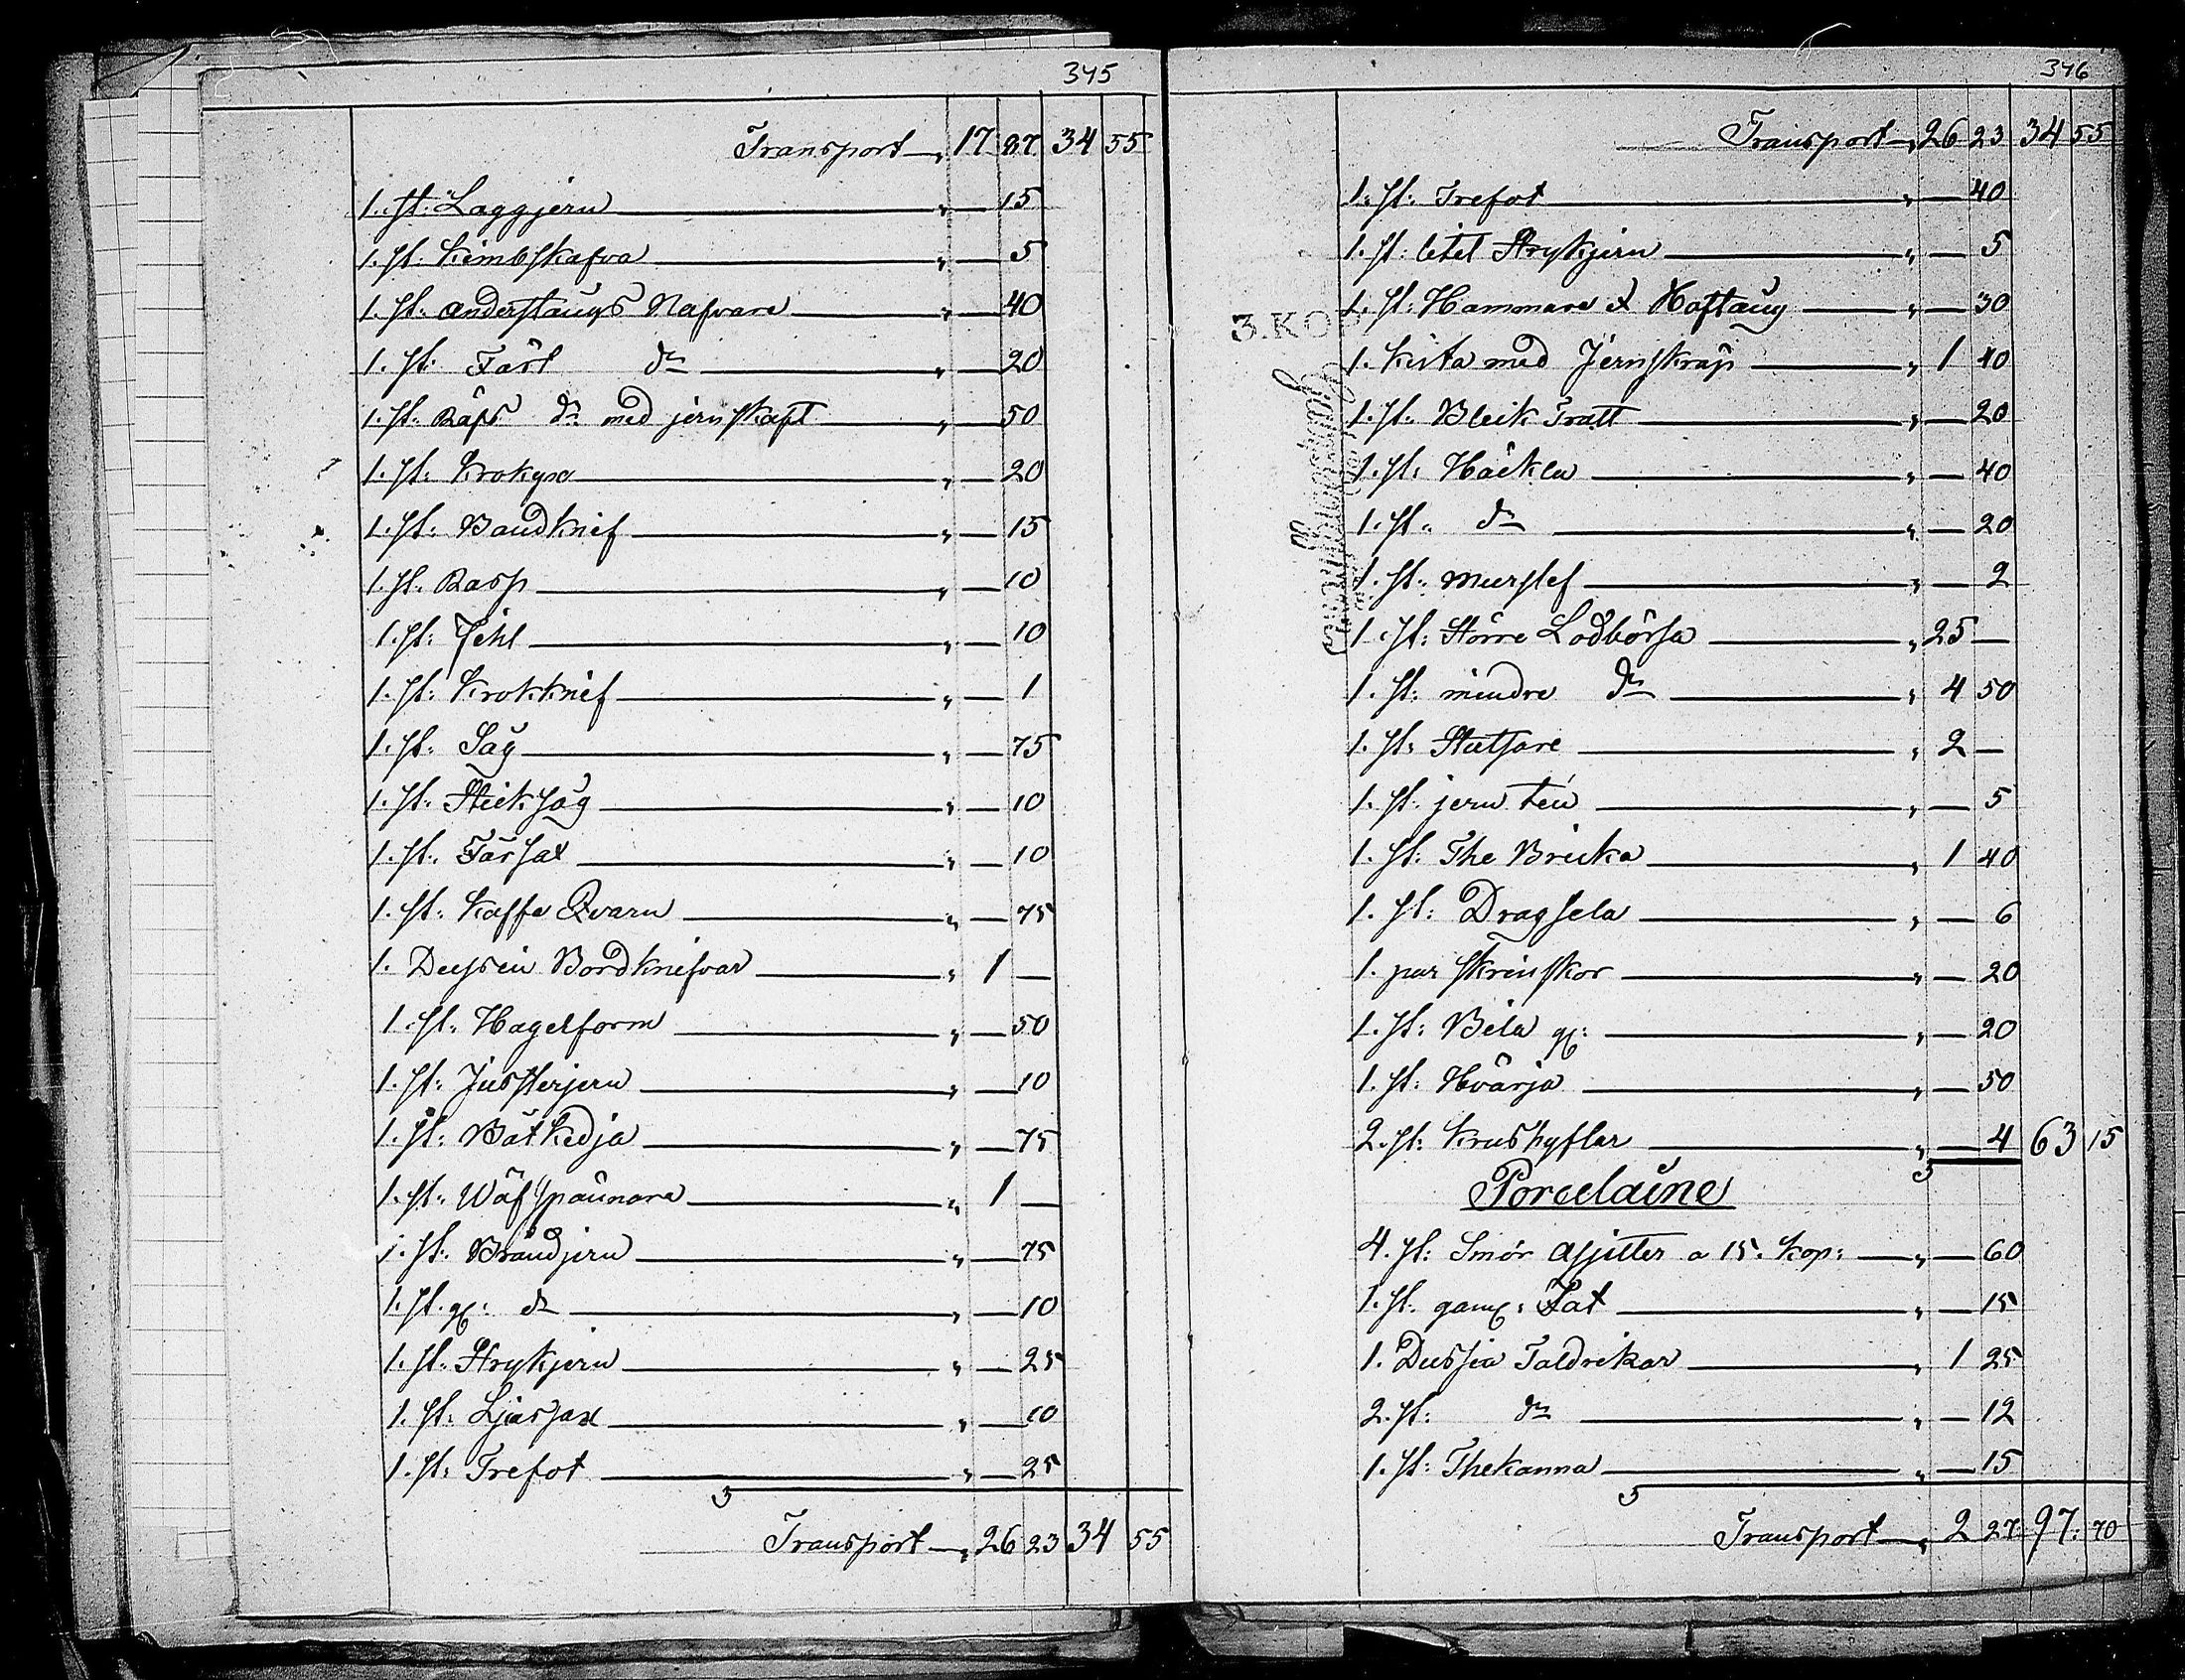 345
Transport „ 17 87 34 55
1. st: Laggjern „ — 15
1. st: Kimbskafva „ — 5
1. st: anderstaugs Nafvare „ — 40
1. st: Fäst do „ — 20
1. st: Räfs do med jernskaft „ — 50
1. st: Krokyxa „ — 20
1. st: Bandknif „ — 15
1. st: Rasp „ — 10
1. st: Fihl „ — 10
1. st: Krokknif „ — 1
1. st: Såg „ — 75
1. st: Sticksåg „ — 10
1. st: Fårsax „ — 10
1. st: Kaffe Qvarn „ — 75
1. Dussin Bordknifvar „ 1 —
1. st: Hagelform „ — 50
1. st: Justerjern „ — 10
1. st: Båtkedja „ — 75
1. st: Wäfspännare „ 1 —
1. st: Brändjern „ — 75
1. st. gl: do „ — 10
1. st: Strykjern „ — 25
1. st: Ljussax „ — 10
1. st: Trefot „ — 25
Transport „ 26 23 34 55
346
Transport „ 26 23 34 55
1. st: Trefot „ — 40
1. st: litet Strykjern „ — 5
1. st: Hammare & Hoftång „ — 30
3.KOP
1. Kista med Jernskräp „ 1 40
1. st: Bleik Tratt „ — 20
1. st: Häckla „ — 40
1. st: do „ — 20
1. st: murslef „ — 2
1 st: Större Lodbörsa „ 25 —
1. st: mindre do „ 4 50
1. st: Stutsare „ 2 —
1. st: jern ten „ — 5
1. st: The Bricka „ 1 40
1. st: Dragsela „ — 6
1. par skrinskor „ — 20
1. st: Bila gl: „ — 20
1. st: Hvärja „ — 50
2. st: Krushyflar „ — 4 63 15
Porcelaine
4. st: Smör assietter a 15. kop: „ — 60
1. st. gaml: Fat „ — 15
1. Dussin Taldrikar „ 1 25
2. st: do „ — 12
1. st: Thekanna „ — 15
Transport „ 2 27 97: 70